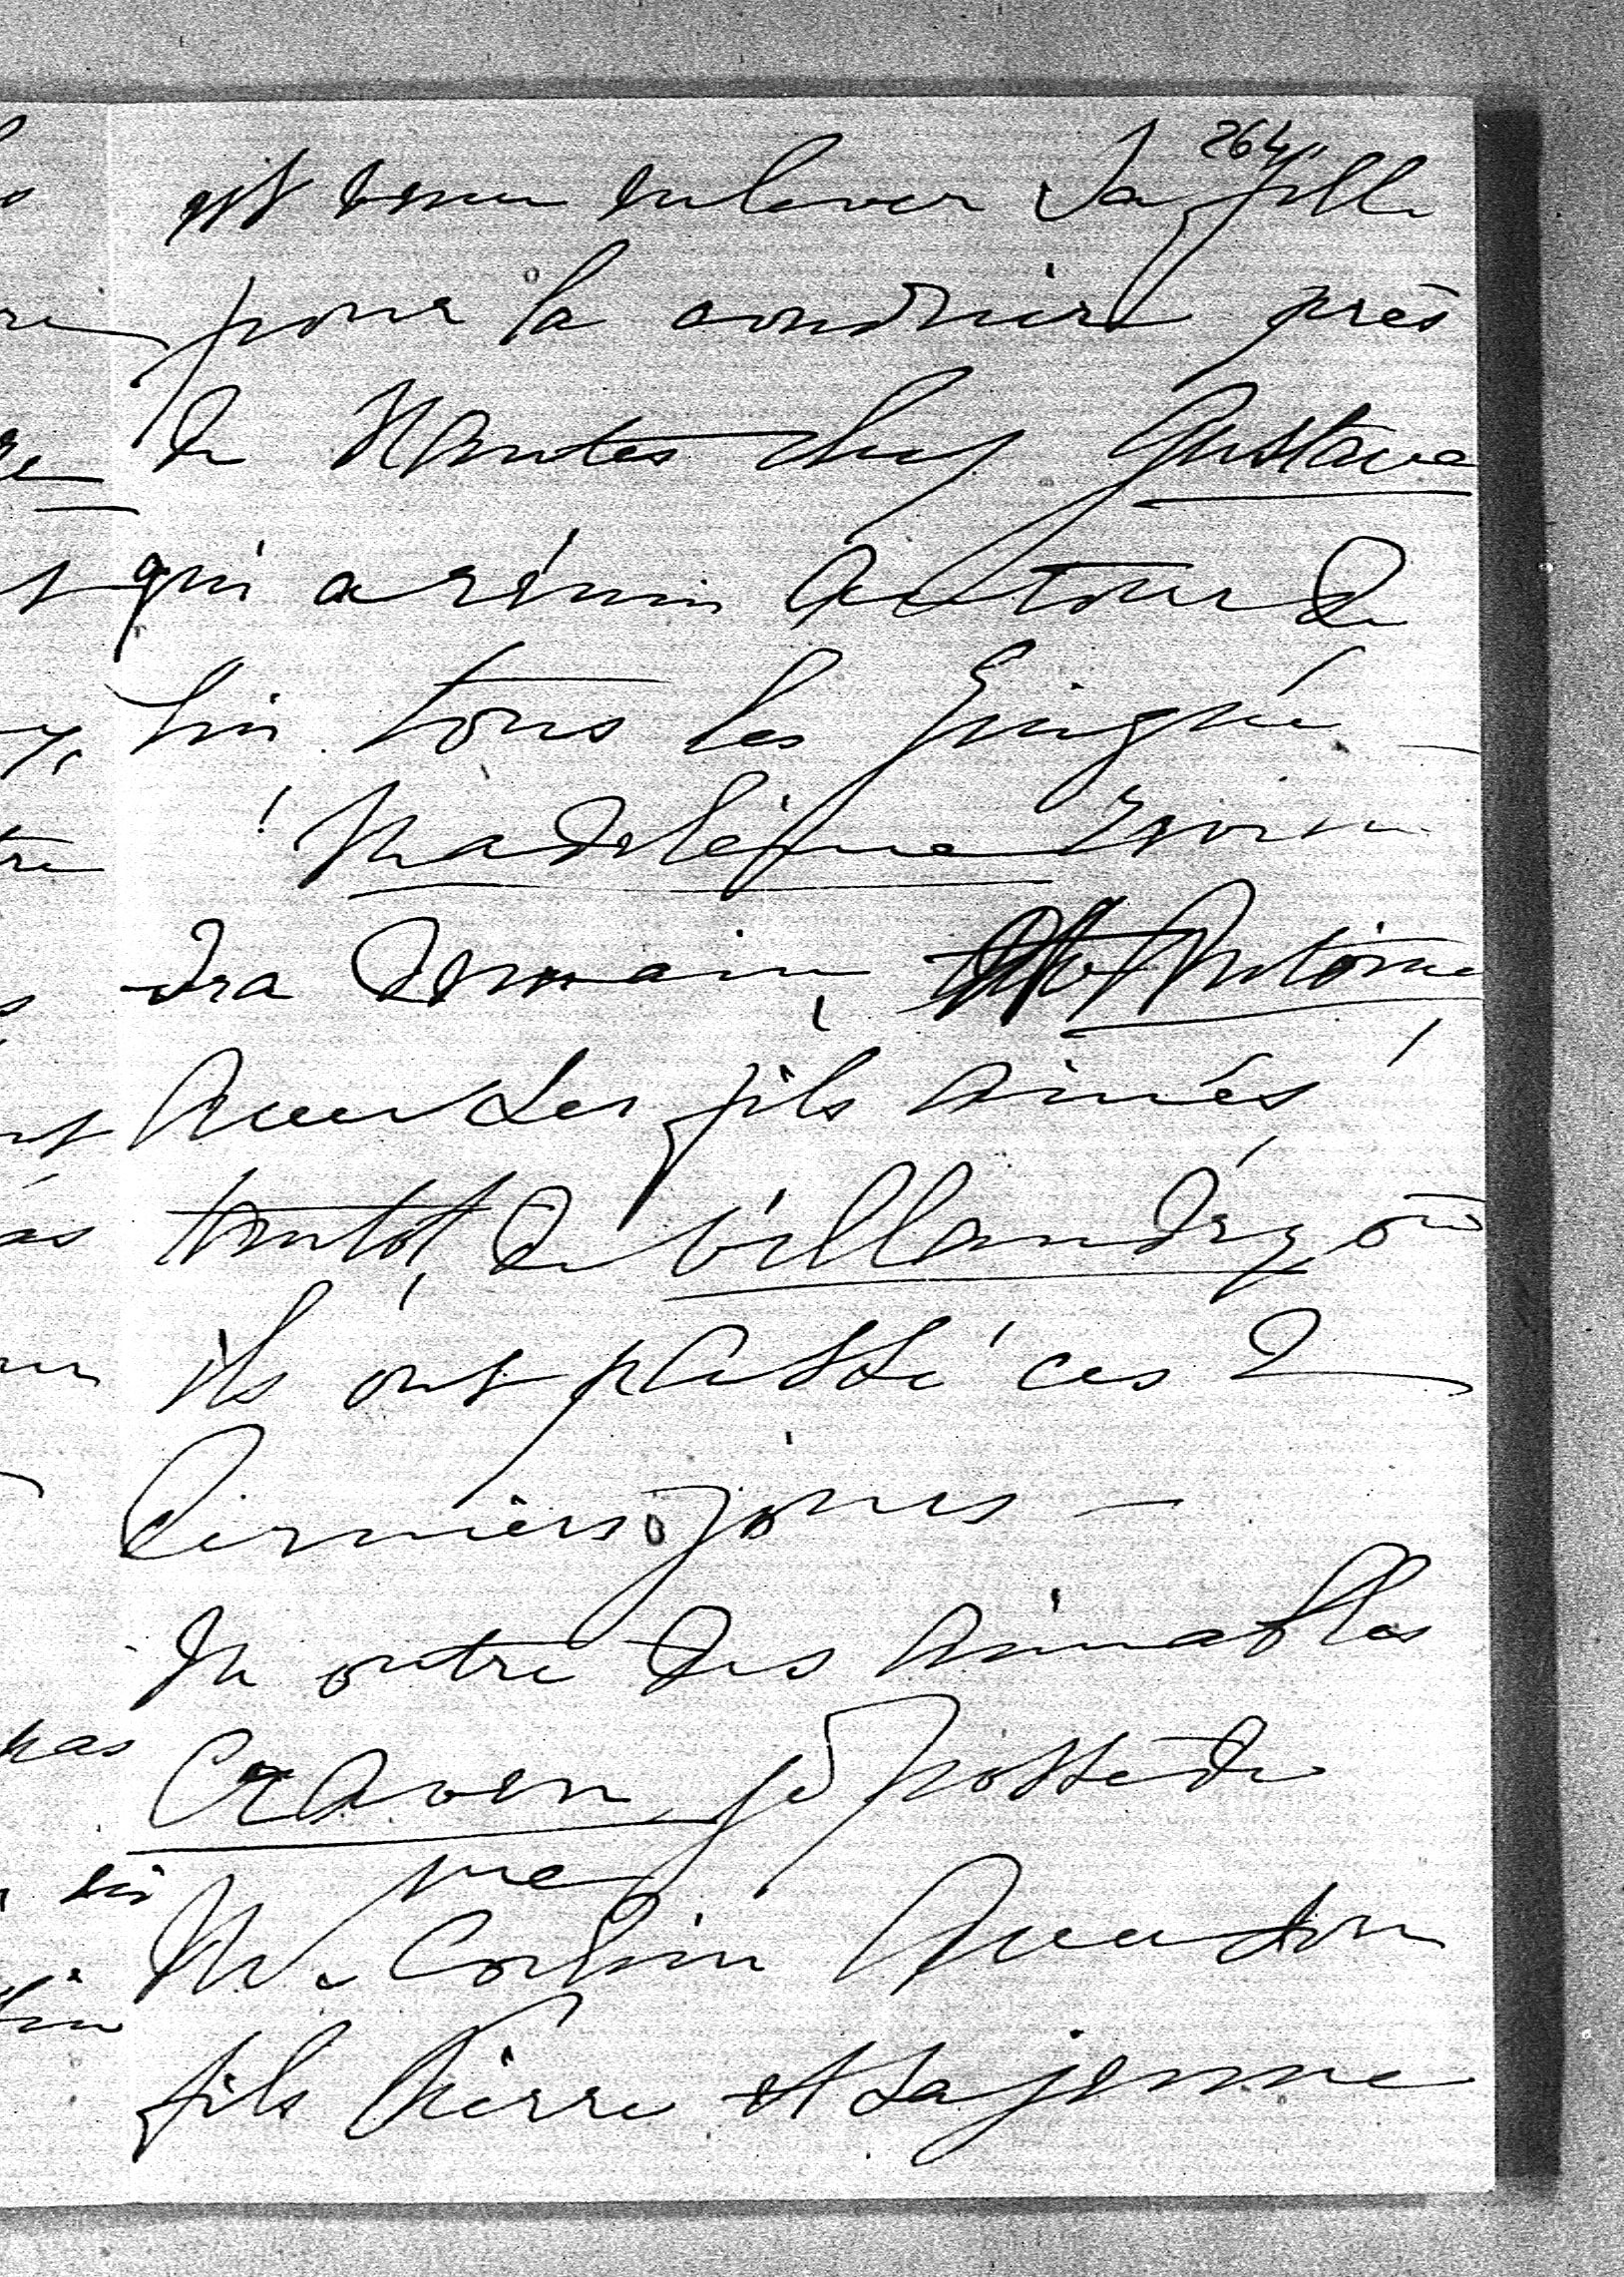 264
est venu enlever sa fille
pour la conduire près
de Nantes chez Gustave
qui a réuni autour de
lui tous les
Madeleine revien
dra demain, Antoine
avec ses fils aînés
tantôt, de Villandry où
ils ont passé ces 2
derniers jours –
En outre des aimables
Craven je possède
Me Corbin avec son
fils Pierre et sa jeune